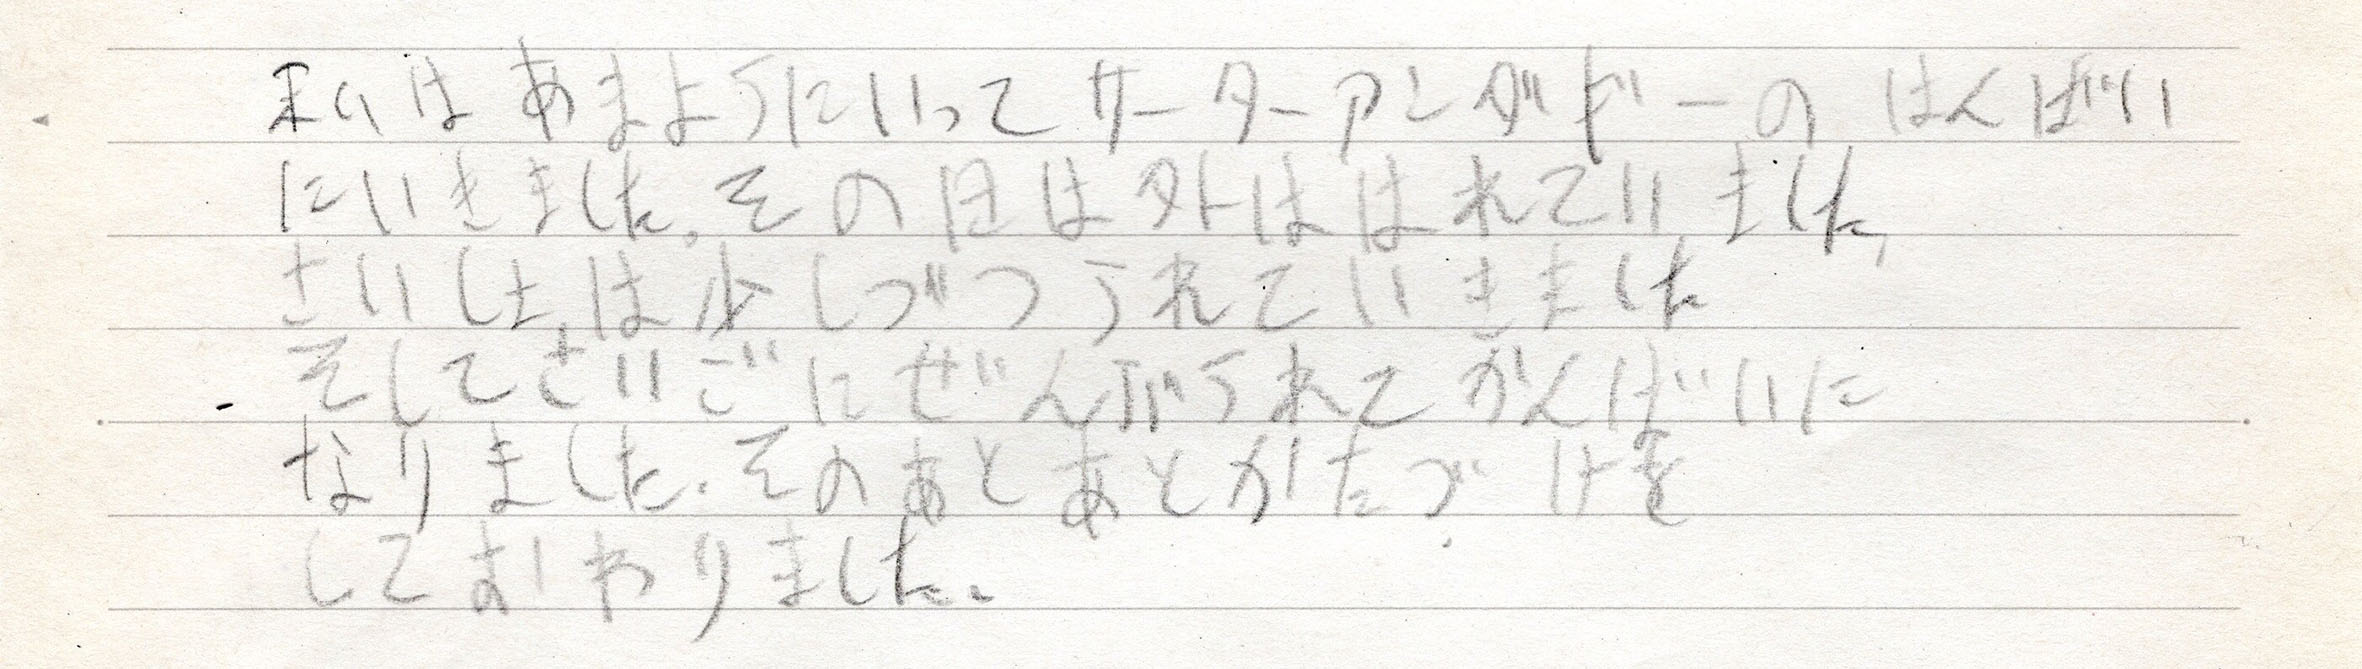 私はあまようにいってサーターアンダギーのはんばい
にいきました。その日は外ははれていました、
さいしょは少しづつうれていきました
そしてさいごにぜんぶうれてかんばいに
なりました。そのあとあとかたづけを
しておわりました。